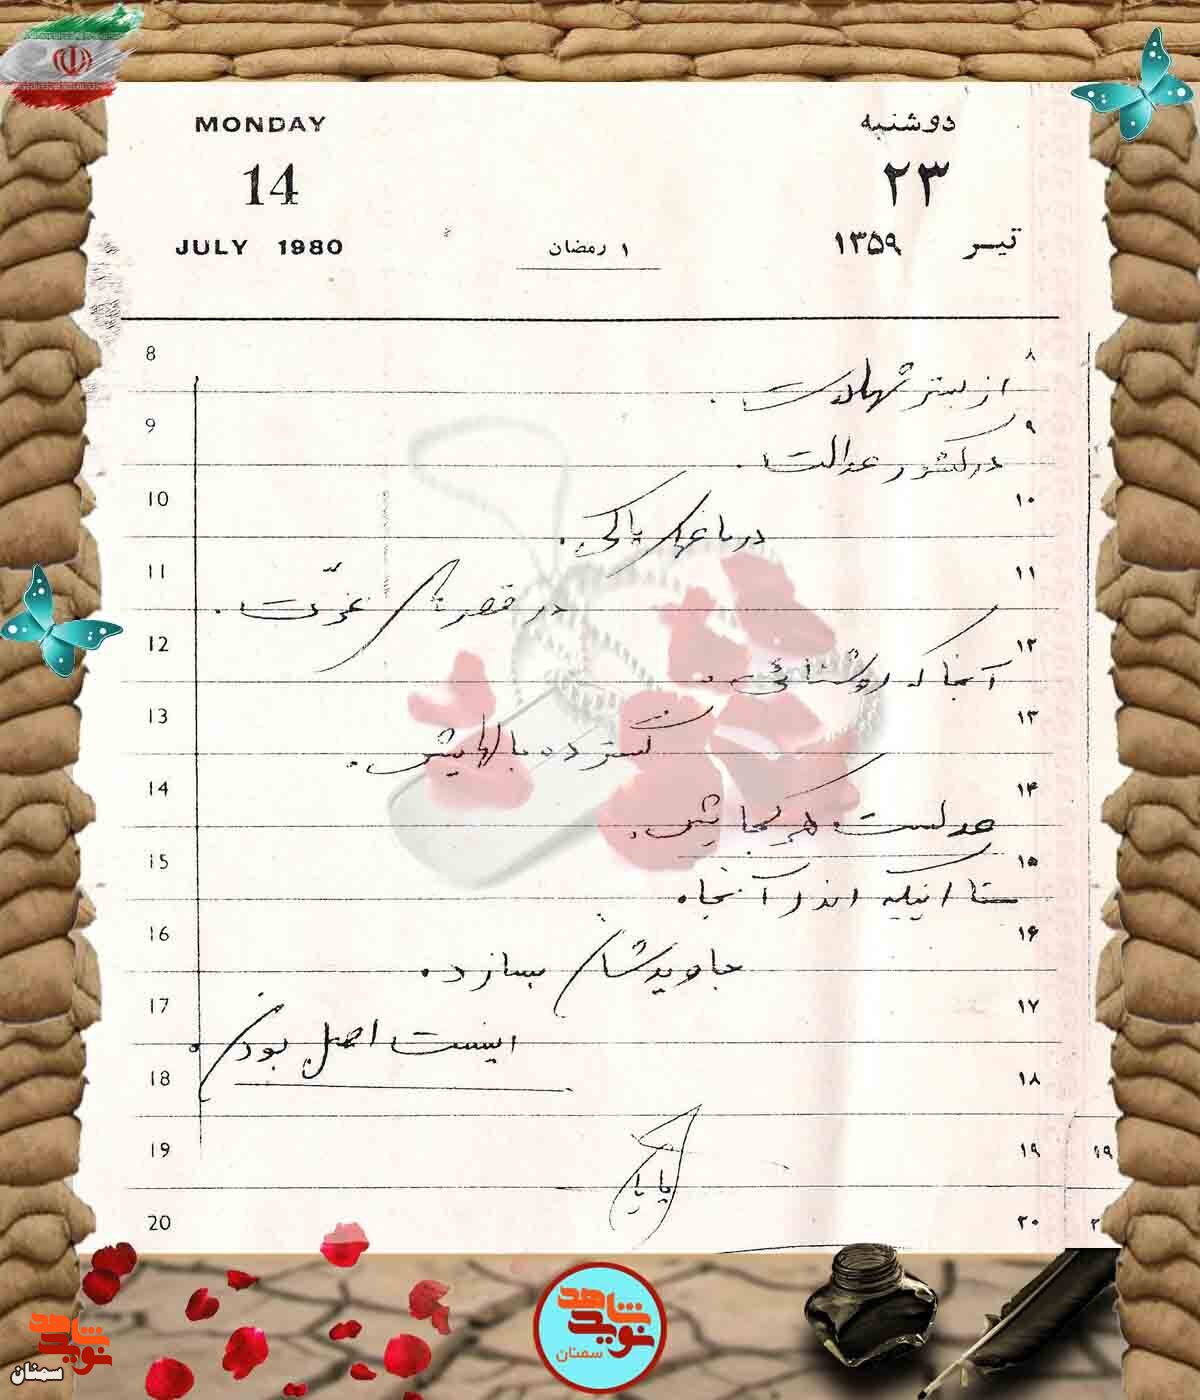 MONDAY
14
JULY 1980
۱ رمضان
دوشنبه
۲۳
تیـر ۱۳۵۹
8 ۸
از بستر شهادت .
9 ۹
در کشور عدالت .
10 ۱۰
در باغهای پاکی .
11 ۱۱
در قصرهای عزّت .
12 ۱۲
آنجا که روشنائی .
13 ۱۳
گسترده بالهایش .
14 ۱۴
عدلست هر کجایش .
15 ۱۵
تا اینکه اندر آنجا .
16 ۱۶
جاویدشان بسازد .
17 ۱۷
اینست اصل بودن .
18 ۱۸
19 ۱۹ ۱۹
پایان
20 ۲۰ ۲
شاهد
نوید
سمنان
شاهد
نوید
سمنان